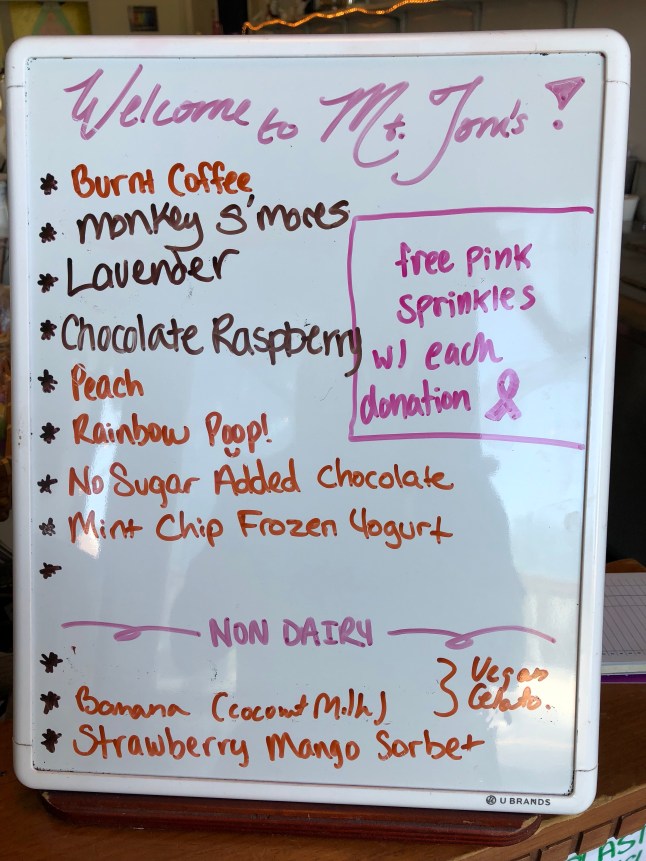 Welcome to Mt. Tom's!
* Burnt Coffee
* monkey s'mores
* Lavender
* Chocolate Raspberry
free pink
sprinkles
w/ each
donation
* Peach
* Rainbow Poop!
* No Sugar Added Chocolate
* Mint Chip Frozen Yogurt
*
NON DAIRY
*
* Banana (Coconut Milk) } Vegan
Gelato.
* Strawberry Mango Sorbet
U BRANDS